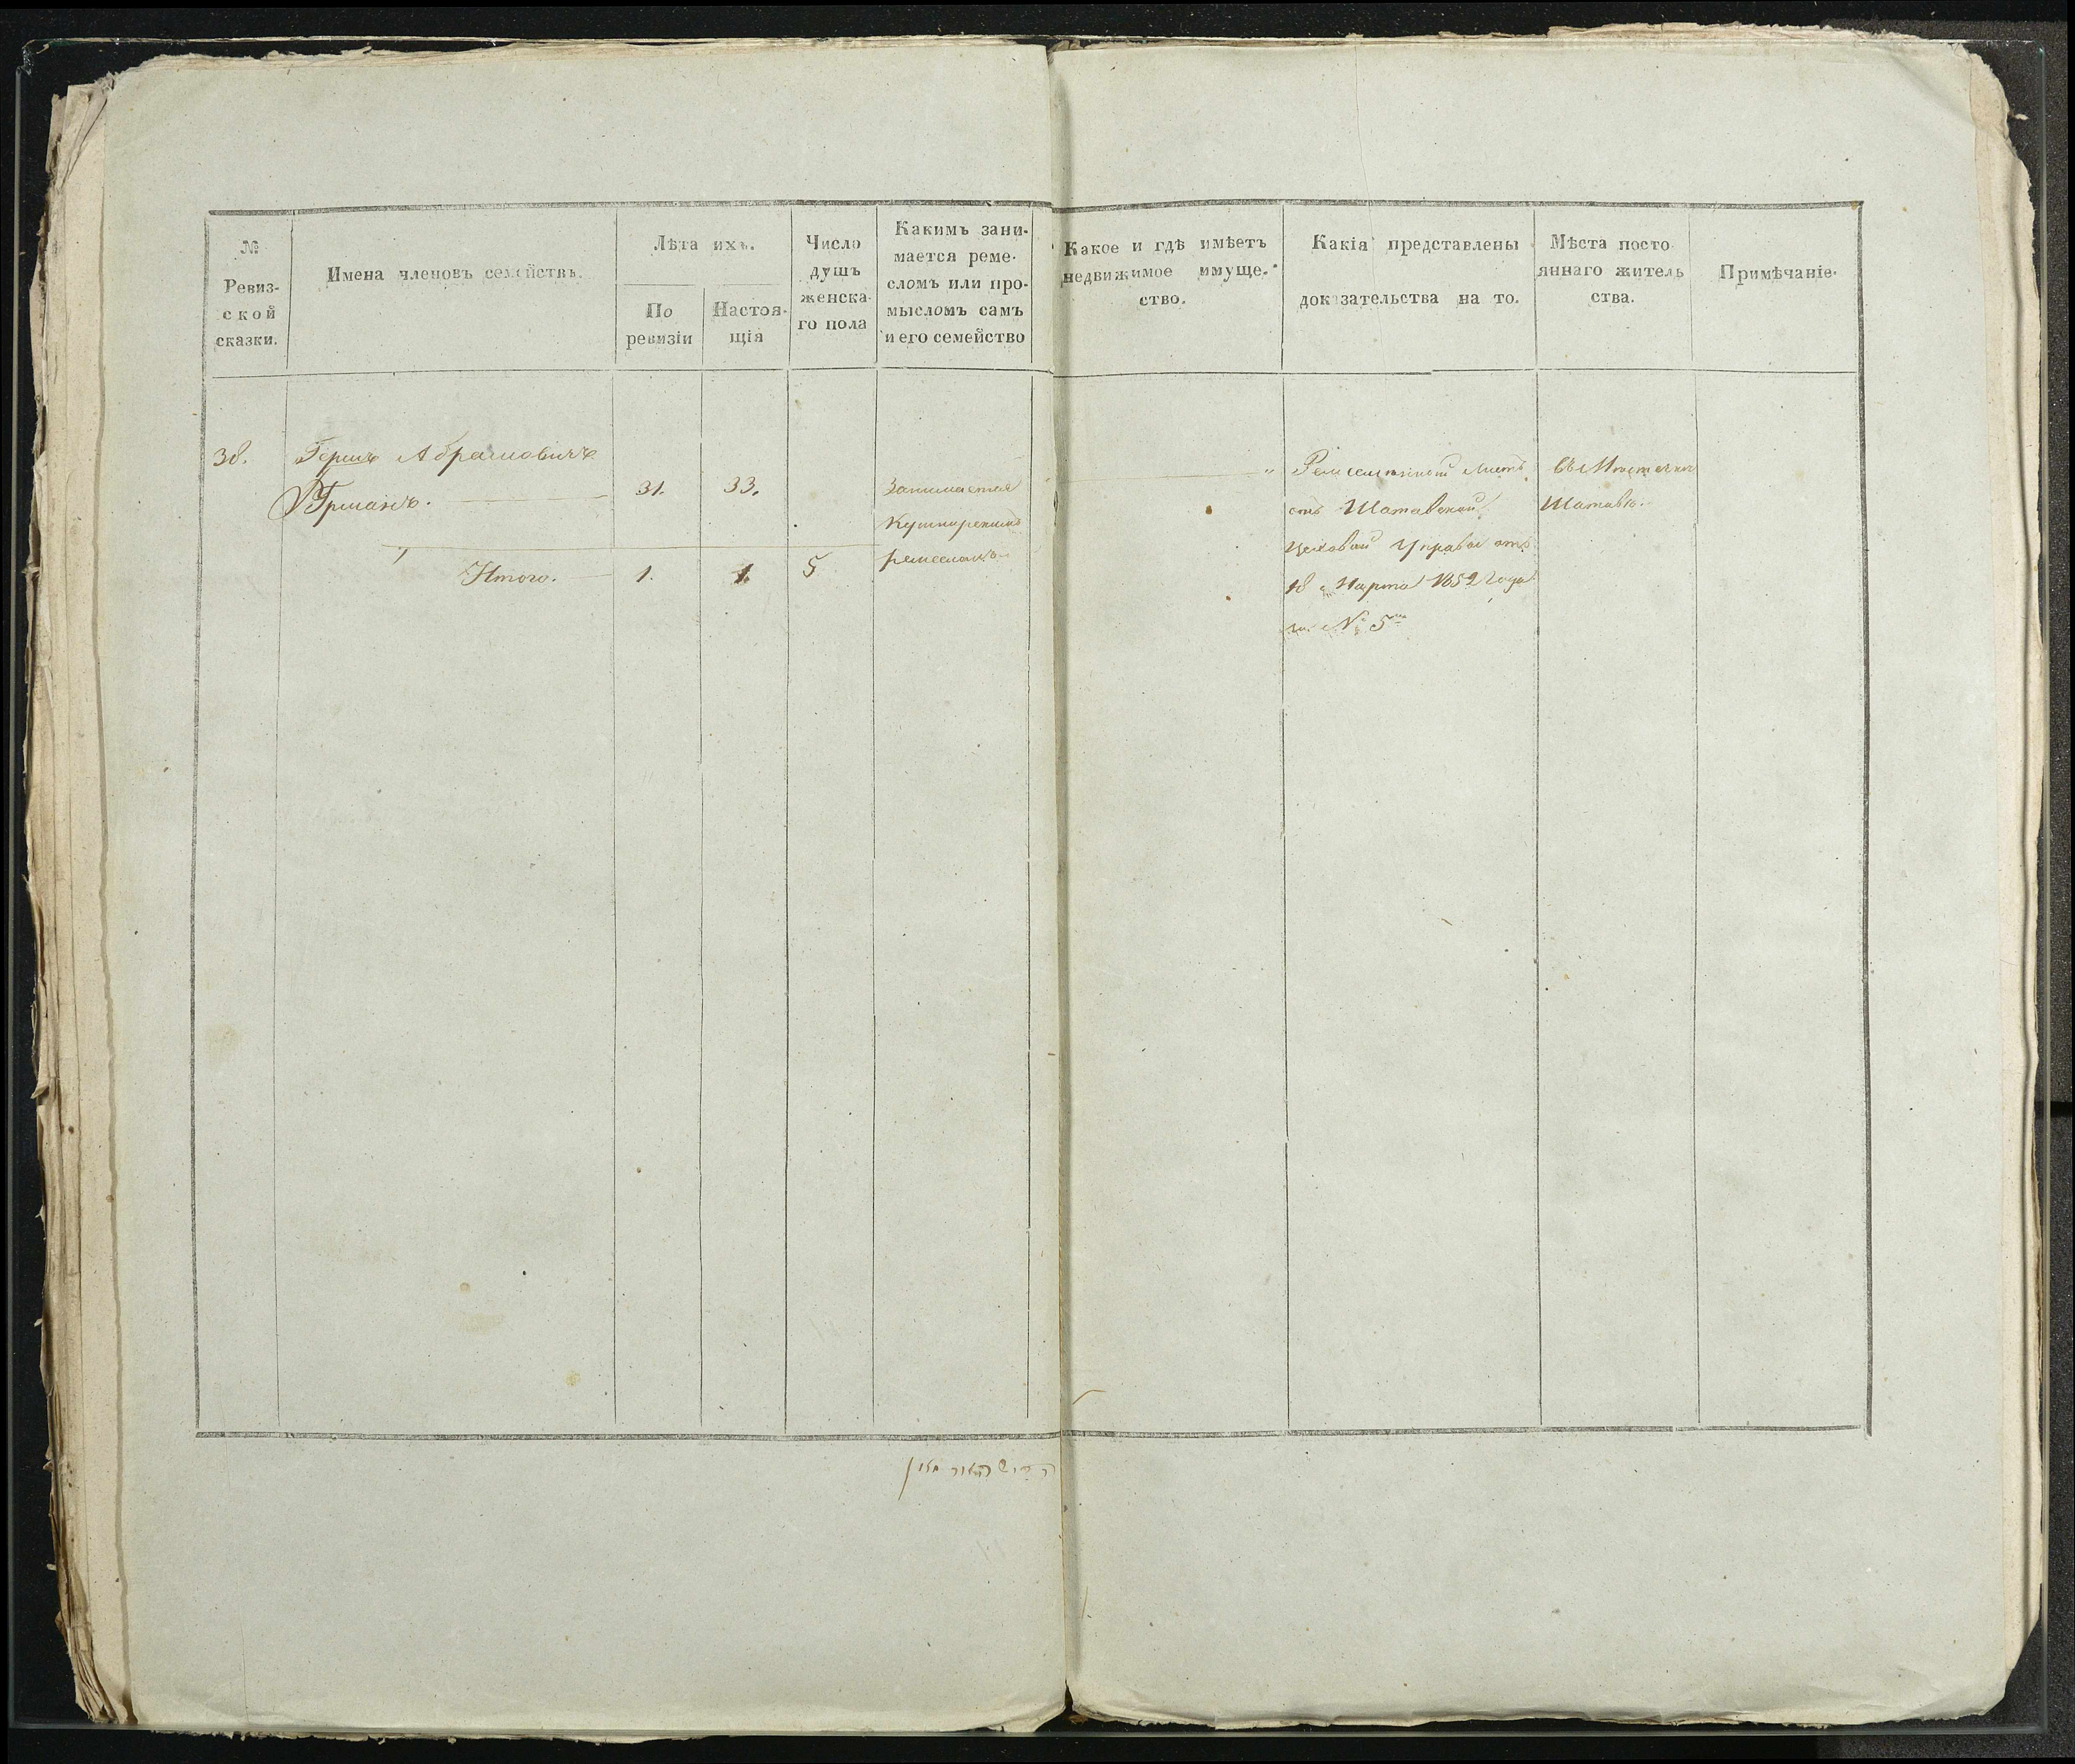 №
Ревиз-
ской
сказки.
Имена членовъ семействъ.
Лѣта ихъ.
По
ревизіи
Настоя-
щія
Число
душъ
женска-
го пола
Какимъ зани-
мается реме-
сломъ или про-
мысломъ самъ
и его семейство
Какое и гдѣ имѣетъ
недвижимое имуще-
ство.
Какія представлены
доказательства на то.
Мѣста посто-
яннаго житель
ства.
Примѣчаніе.
38.
Гершъ Абрамовичъ
31.
33.
Занимается
Кушнерскимъ
ремесломъ
Итого.
1.
1.
5
Ремесленный Листъ
отъ Шатавской
Цеховой Управы отъ
18 Марта 1852 года
за № 5
Въ Местечкѣ
Шатавѣ.